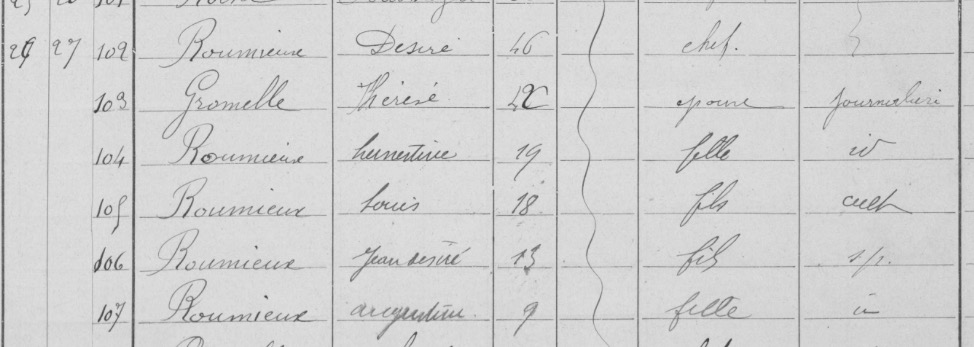 26 27 102 Roumieux Desiré 46 chef.
103 Gromelle Thérèse 42 epouse journalieri
104 Roumieux hernestine 19 fille id
105 Roumieux Louis 18 fils cult
106 Roumieux Jean désiré 13 fils s/p.
107 Roumieux argentine 9 fille